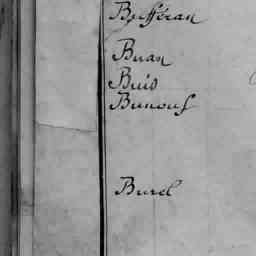 Bufféran
Buan
Buis
Bunouf
Burel